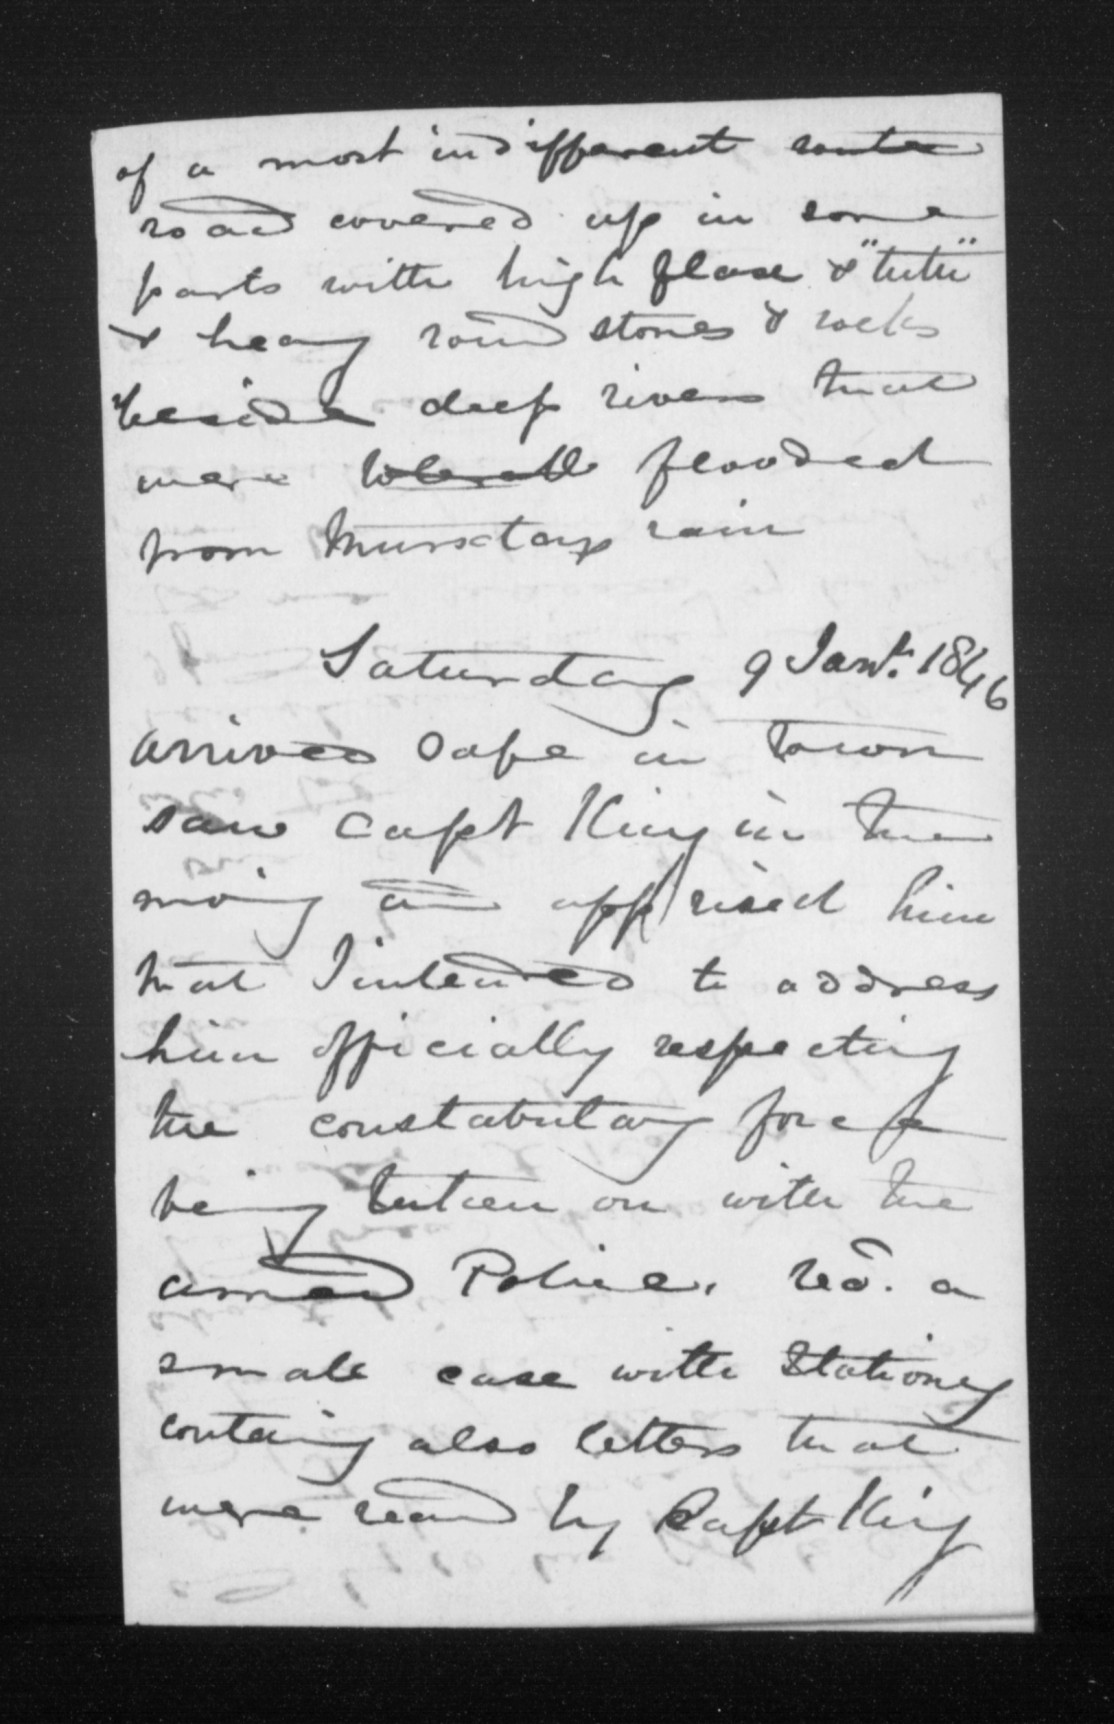 of a most indifferent route
road covered up in some
parts with high flax & "tutu"
& heavy round stones & rocks
beside deep rivers that
were flooded
from Thursdays rain
Saturday 9 Jany. 1846
arrived safe in town
saw Capt King in the
morning and apprised him
that I intended to address
him officially respecting
the constabulary force
being taken on with the
armed Police. Recd. a
small case with Stationery
containing also letters that
were read by Capt King